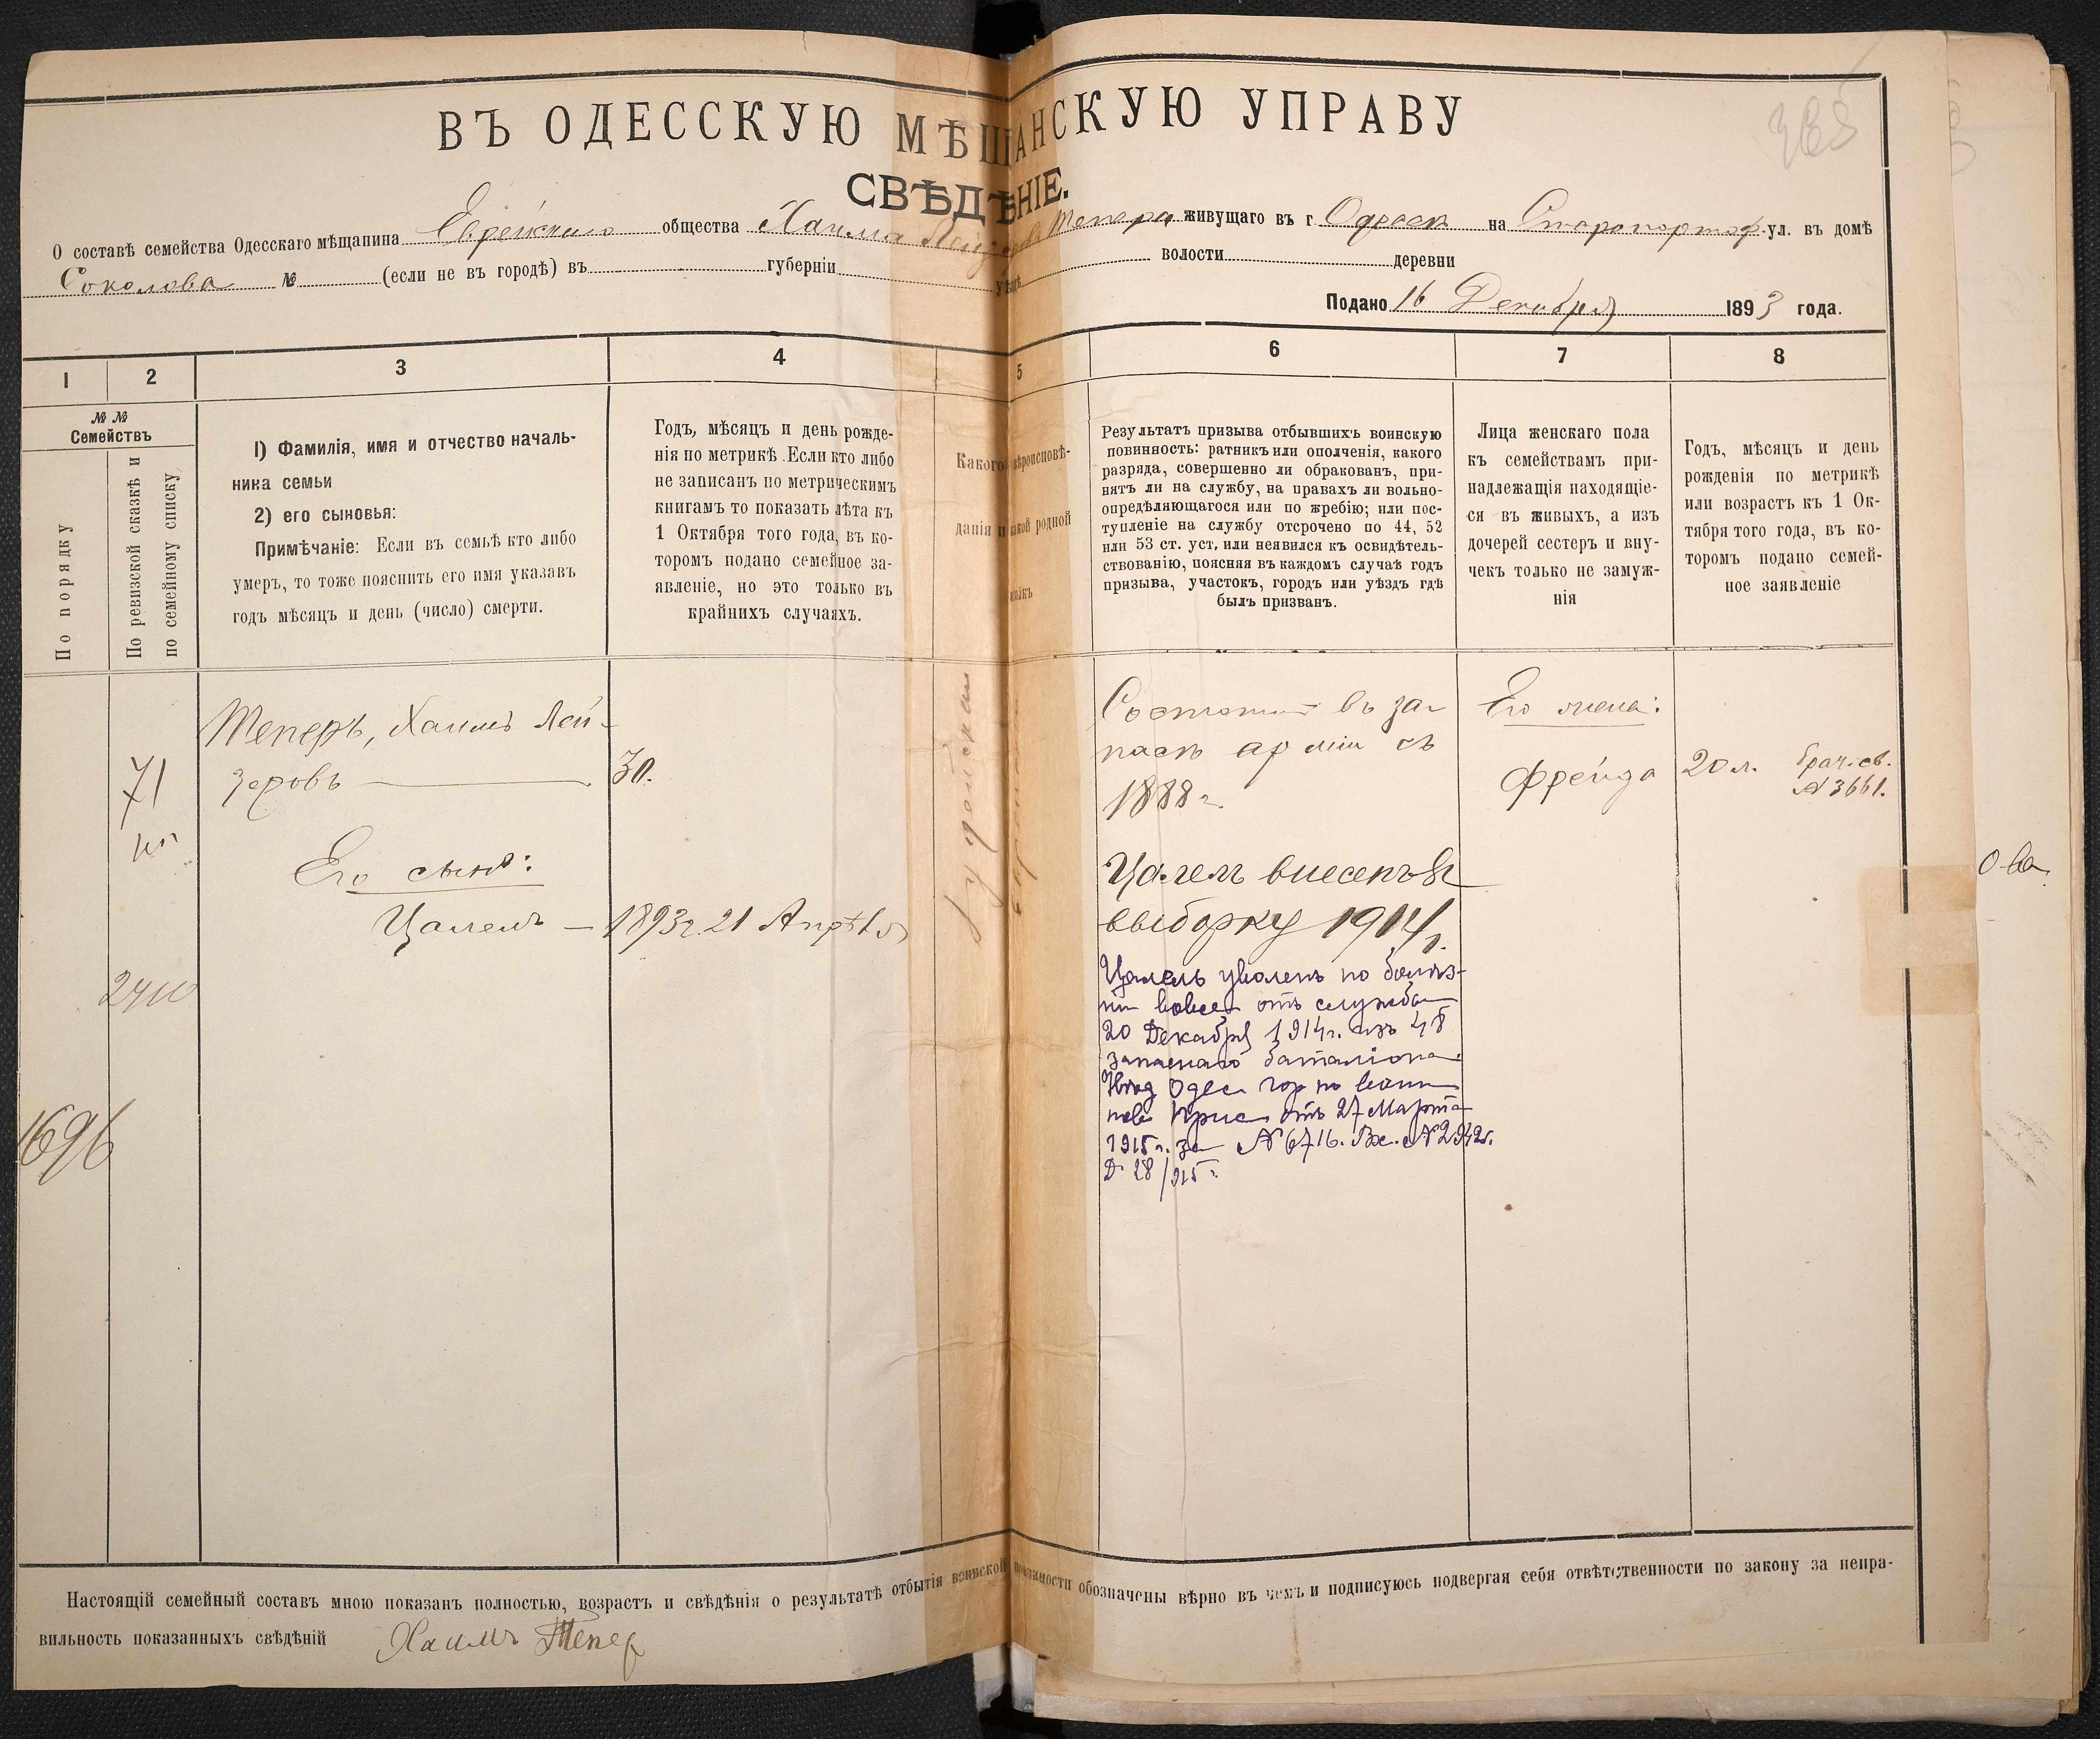 ВЪ ОДЕССКУЮ МѢЩАНСКУЮ УПРАВУ
СВѢДѢНІЕ.
О составѣ семейства Одесскаго мѣщанина Еврейскаго общества Хаима Лейзерова Тепера живущаго въ г. Одессѣ на Старопортоф. ул. въ домѣ
Соколова № (если не въ городѣ) въ губерніи уѣздѣ волости деревни
Подано 16 Декабря 1893 года.
1 2 3 4 5 6 7 8
№ №
Семействъ
По порядку
По ревизской сказкѣ и
по семейному списку
1) Фамилія, имя и отчество началь-
ника семьи
2) его сыновья:
Примѣчаніе: Если въ семьѣ кто либо
умеръ, то тоже пояснить его имя указавъ
годъ мѣсяцъ и день (число) смерти.
Годъ, мѣсяцъ и день рожде-
нія по метрикѣ. Если кто либо
не записанъ по метрическимъ
книгамъ то показать лѣта къ
1 Октября того года, въ ко-
торомъ подано семейное за-
явленіе, но это только въ
крайнихъ случаяхъ.
Какого вѣроисповѣ-
данія и какой родной
языкъ
Результатъ призыва отбывшихъ воинскую
повинность: ратникъ или ополченія, какого
разряда, совершенно ли обракованъ, при-
нятъ ли на службу, на правахъ ли вольно-
опредѣляющагося или по жребію; или пос-
тупленіе на службу отсрочено по 44, 52
или 53 ст. уст. или неявился къ освидѣтель-
ствованію, поясняя въ каждомъ случаѣ годъ
призыва, участокъ, городъ или уѣздъ гдѣ
былъ призванъ.
Лица женскаго пола
къ семействамъ при-
надлежащія находящіе-
ся въ живыхъ, а изъ
дочерей сестеръ и вну-
чекъ только не замуж-
нія
Годъ, мѣсяцъ и день
рожденія по метрикѣ
или возрастъ къ 1 Ок-
тября того года, въ ко-
торомъ подано семей-
ное заявленіе
71
2410
1696
Теперъ, Хаимъ Лей-
зеровъ
30.
Его сынъ:
Цалель — 1893г. 21 Апрѣля
Іудейскаго
Состоитъ въ за-
пасѣ арміи съ
1888 г.
Цалель внесенъ въ
выборку 1914 г.
Цалель уволенъ по болѣз-
ни вовсе отъ службы
20 Декабря 1914г. изъ 48
запаснаго баталіона
Одес. гор. по воин
пов. Прис. отъ 27 Марта
1915 г. за № 6716. Вх. № 2942.
Д 28/915 г.
Его жена:
Фрейда
20 л. брач. св.
№ 3661.
Настоящій семейный составъ мною показанъ полностью, возрастъ и свѣдѣнія о результатѣ отбытія воинской повинности обозначены вѣрно въ чемъ и подписуюсь подвергая себя отвѣтственности по закону за непра-
вильность показанныхъ свѣдѣній Хаимъ Тепер